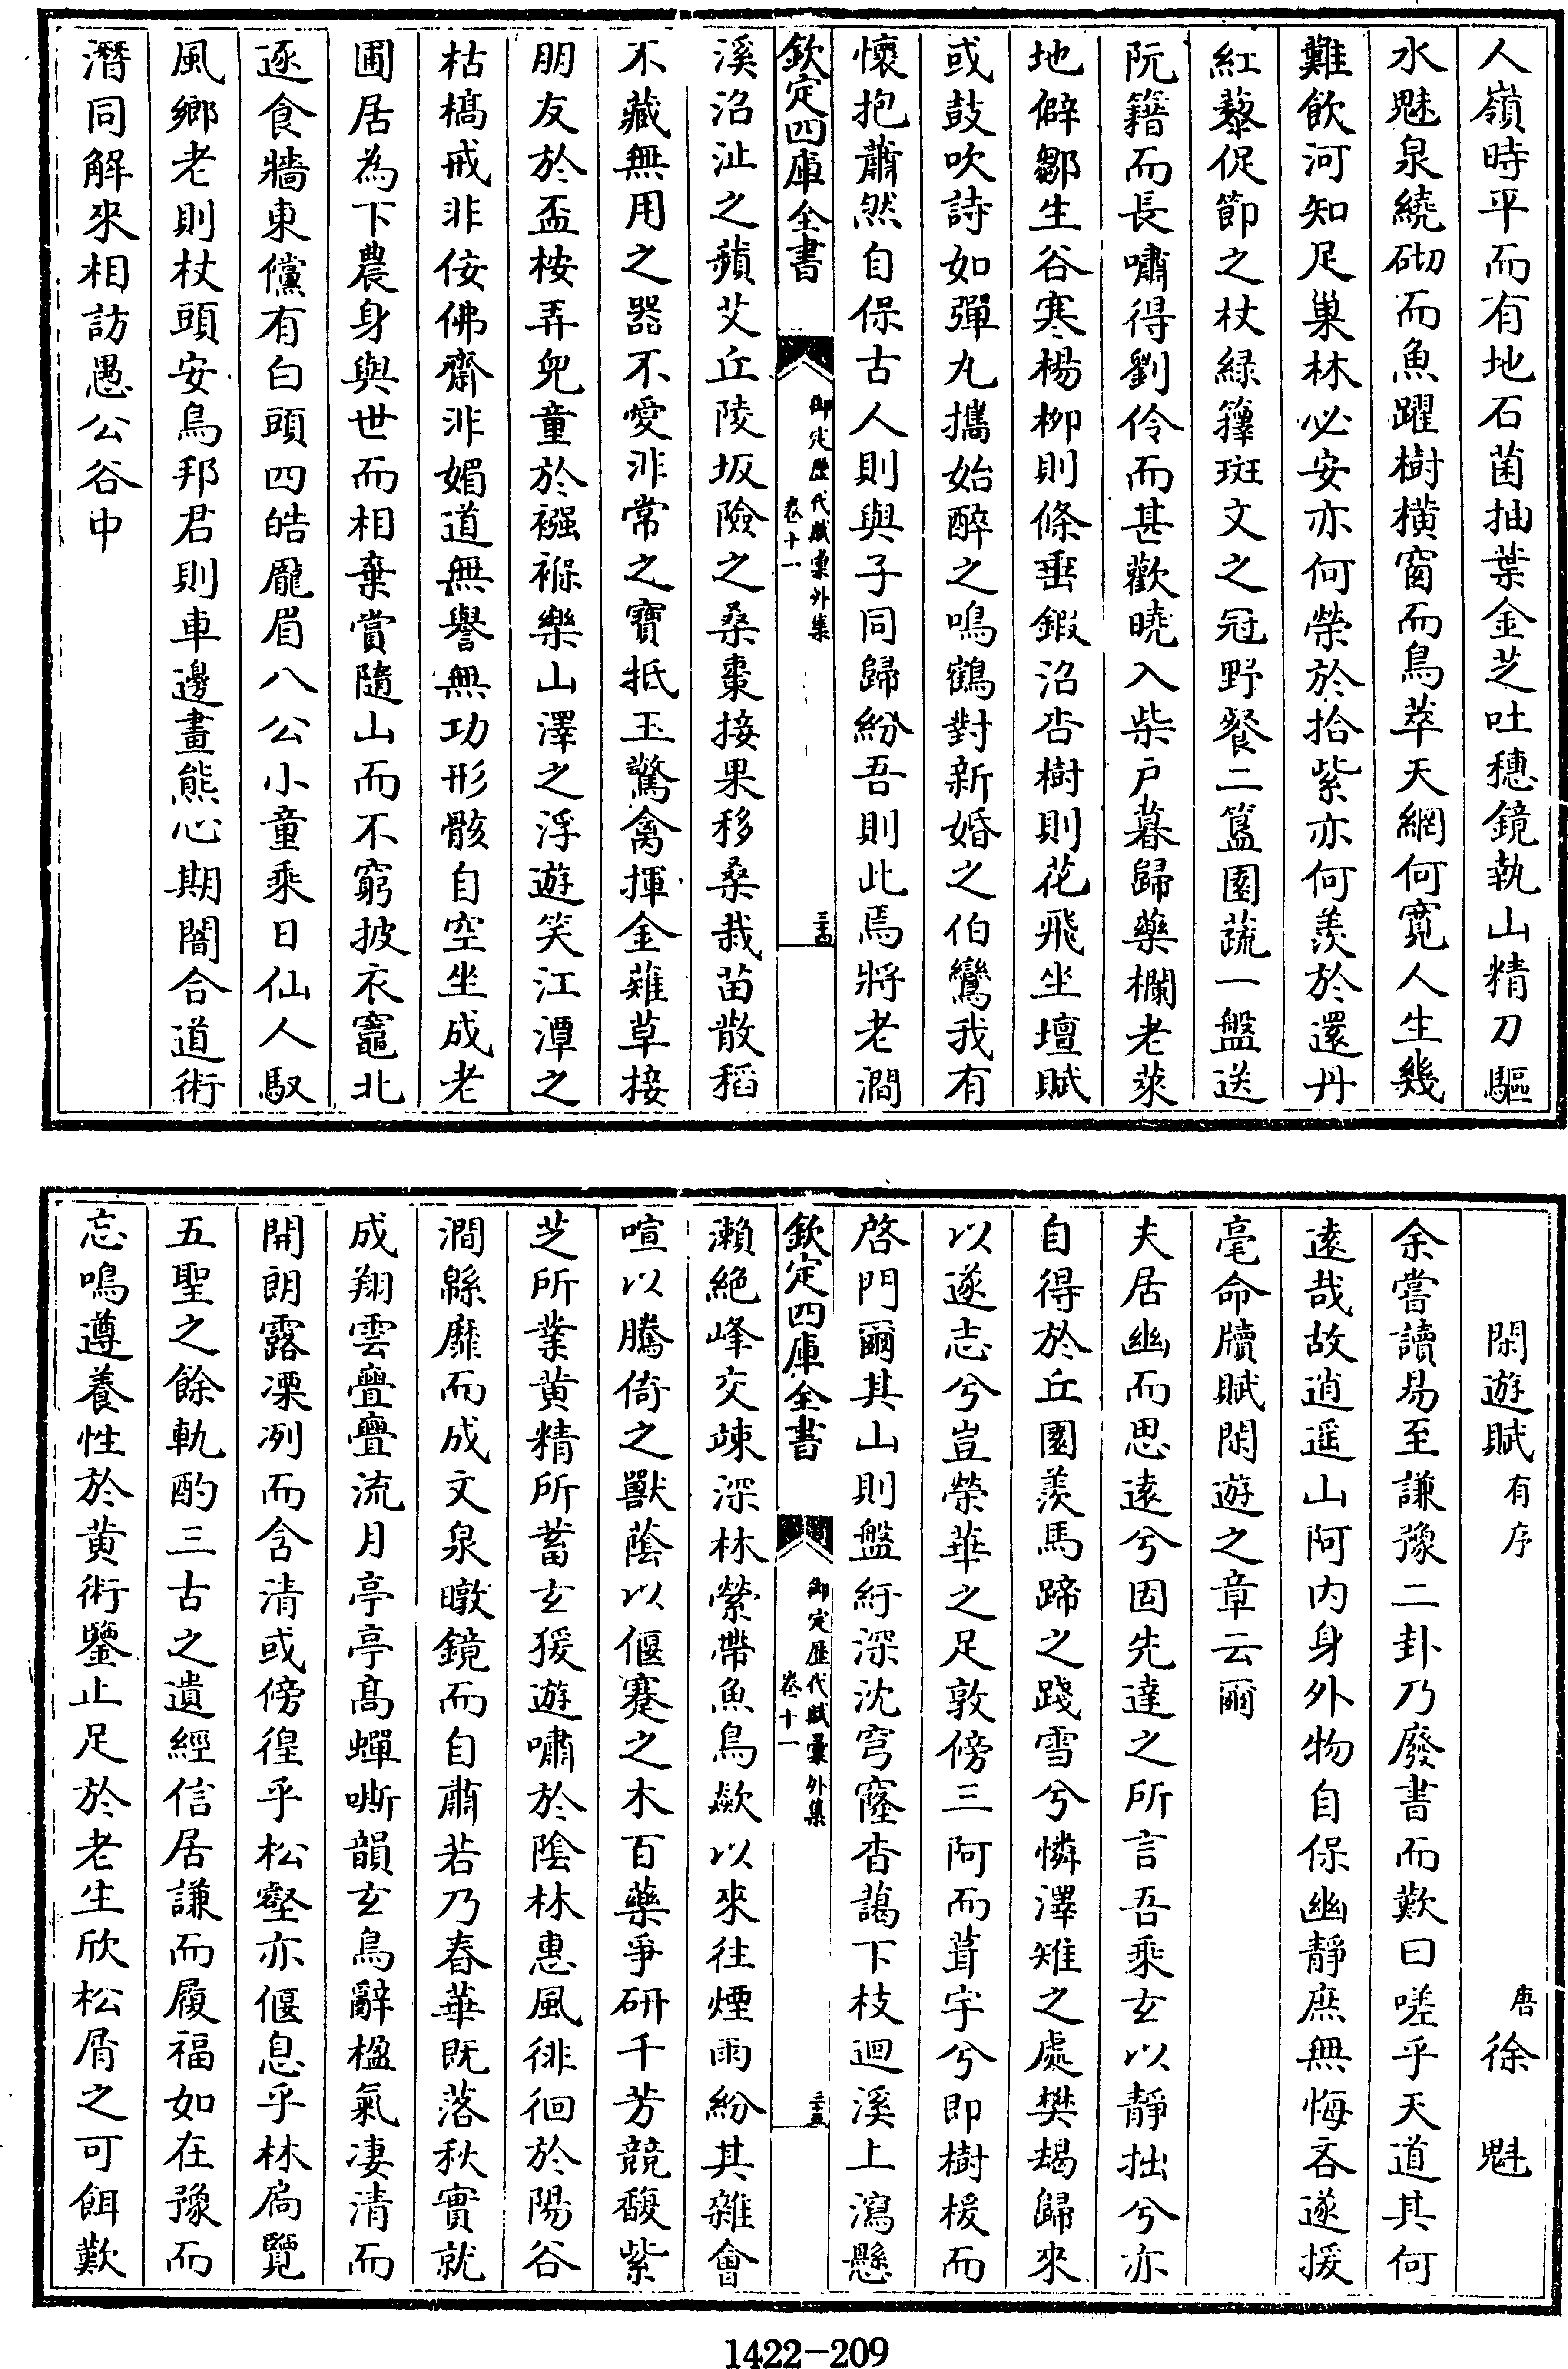 人嶺時平而有地石菌抽葉金芝吐穗鏡執山精刀驅
水魅泉繞砌而魚躍樹橫窗而鳥萃天網何寛人生幾
難飲河知足巢林必安亦何榮於拾紫亦何羨於還丹
紅藜促節之杖緑籜斑文之冠野餐二簋園蔬一盤送
阮籍而長嘯得劉伶而甚歡曉入柴户暮歸藥欄老萊
地僻鄒生谷寒楊栁則條垂鍜沼杏樹則花飛坐壇賦
或鼓吹詩如彈丸攜始醉之鳴鶴對新婚之伯鸞我有
懷抱蕭然自保古人則與子同歸紛吾則此焉將老澗
欽定四庫全書
御定歴代賦彙外集
卷十一
三十四
溪沼沚之蘋艾丘陵坂險之桑棗接果移桑栽苗散稻
不藏無用之器不愛非常之寶抵玉驚禽揮金薙草接
朋友於盃桉弄兒童於襁褓樂山澤之浮遊笑江潭之
枯槁戒非佞佛齋非媚道無譽無功形骸自空坐成老
圃居為下農身與世而相棄賞隨山而不窮披衣竈北
逐食牆東儻有白頭四皓厖眉八公小童乘日仙人馭
風鄉老則杖頭安鳥邦君則車邊畫熊心期闇合道術
潛同解來相訪愚公谷中
閑遊賦有序
唐徐魁
余嘗讀易至謙豫二卦乃廢書而歎曰嗟乎天道其何
遠哉故逍遥山阿内身外物自保幽靜庶無悔吝遂援
毫命牘賦閑遊之章云爾
夫居幽而思遠兮固先達之所言吾乘玄以靜拙兮亦
自得於丘園羨馬蹄之踐雪兮憐澤雉之處樊朅歸來
以遂志兮豈榮華之足敦傍三阿而葺宇兮即樹楥而
啓門爾其山則盤紆深沈穹窿杳藹下枝迴溪上瀉懸
瀨絶峰交竦深林縈帶魚鳥歘以來往煙雨紛其雜會
喧以騰倚之獸蔭以偃蹇之木百藥爭研千芳競馥紫
芝所業黄精所蓄玄猨遊嘯於陰林惠風徘徊於陽谷
澗緜靡而成文泉暾鏡而自肅若乃春華既落秋實就
成翔雲疊疊流月亭亭髙蟬嘶韻玄鳥辭楹氣凄清而
開朗露凓冽而含清或傍徨乎松壑亦偃息乎林扃覽
五聖之餘軌酌三古之遺經信居謙而履福如在豫而
忘鳴遵養性於黄術鑒止足於老生欣松屑之可餌歎
1422-209